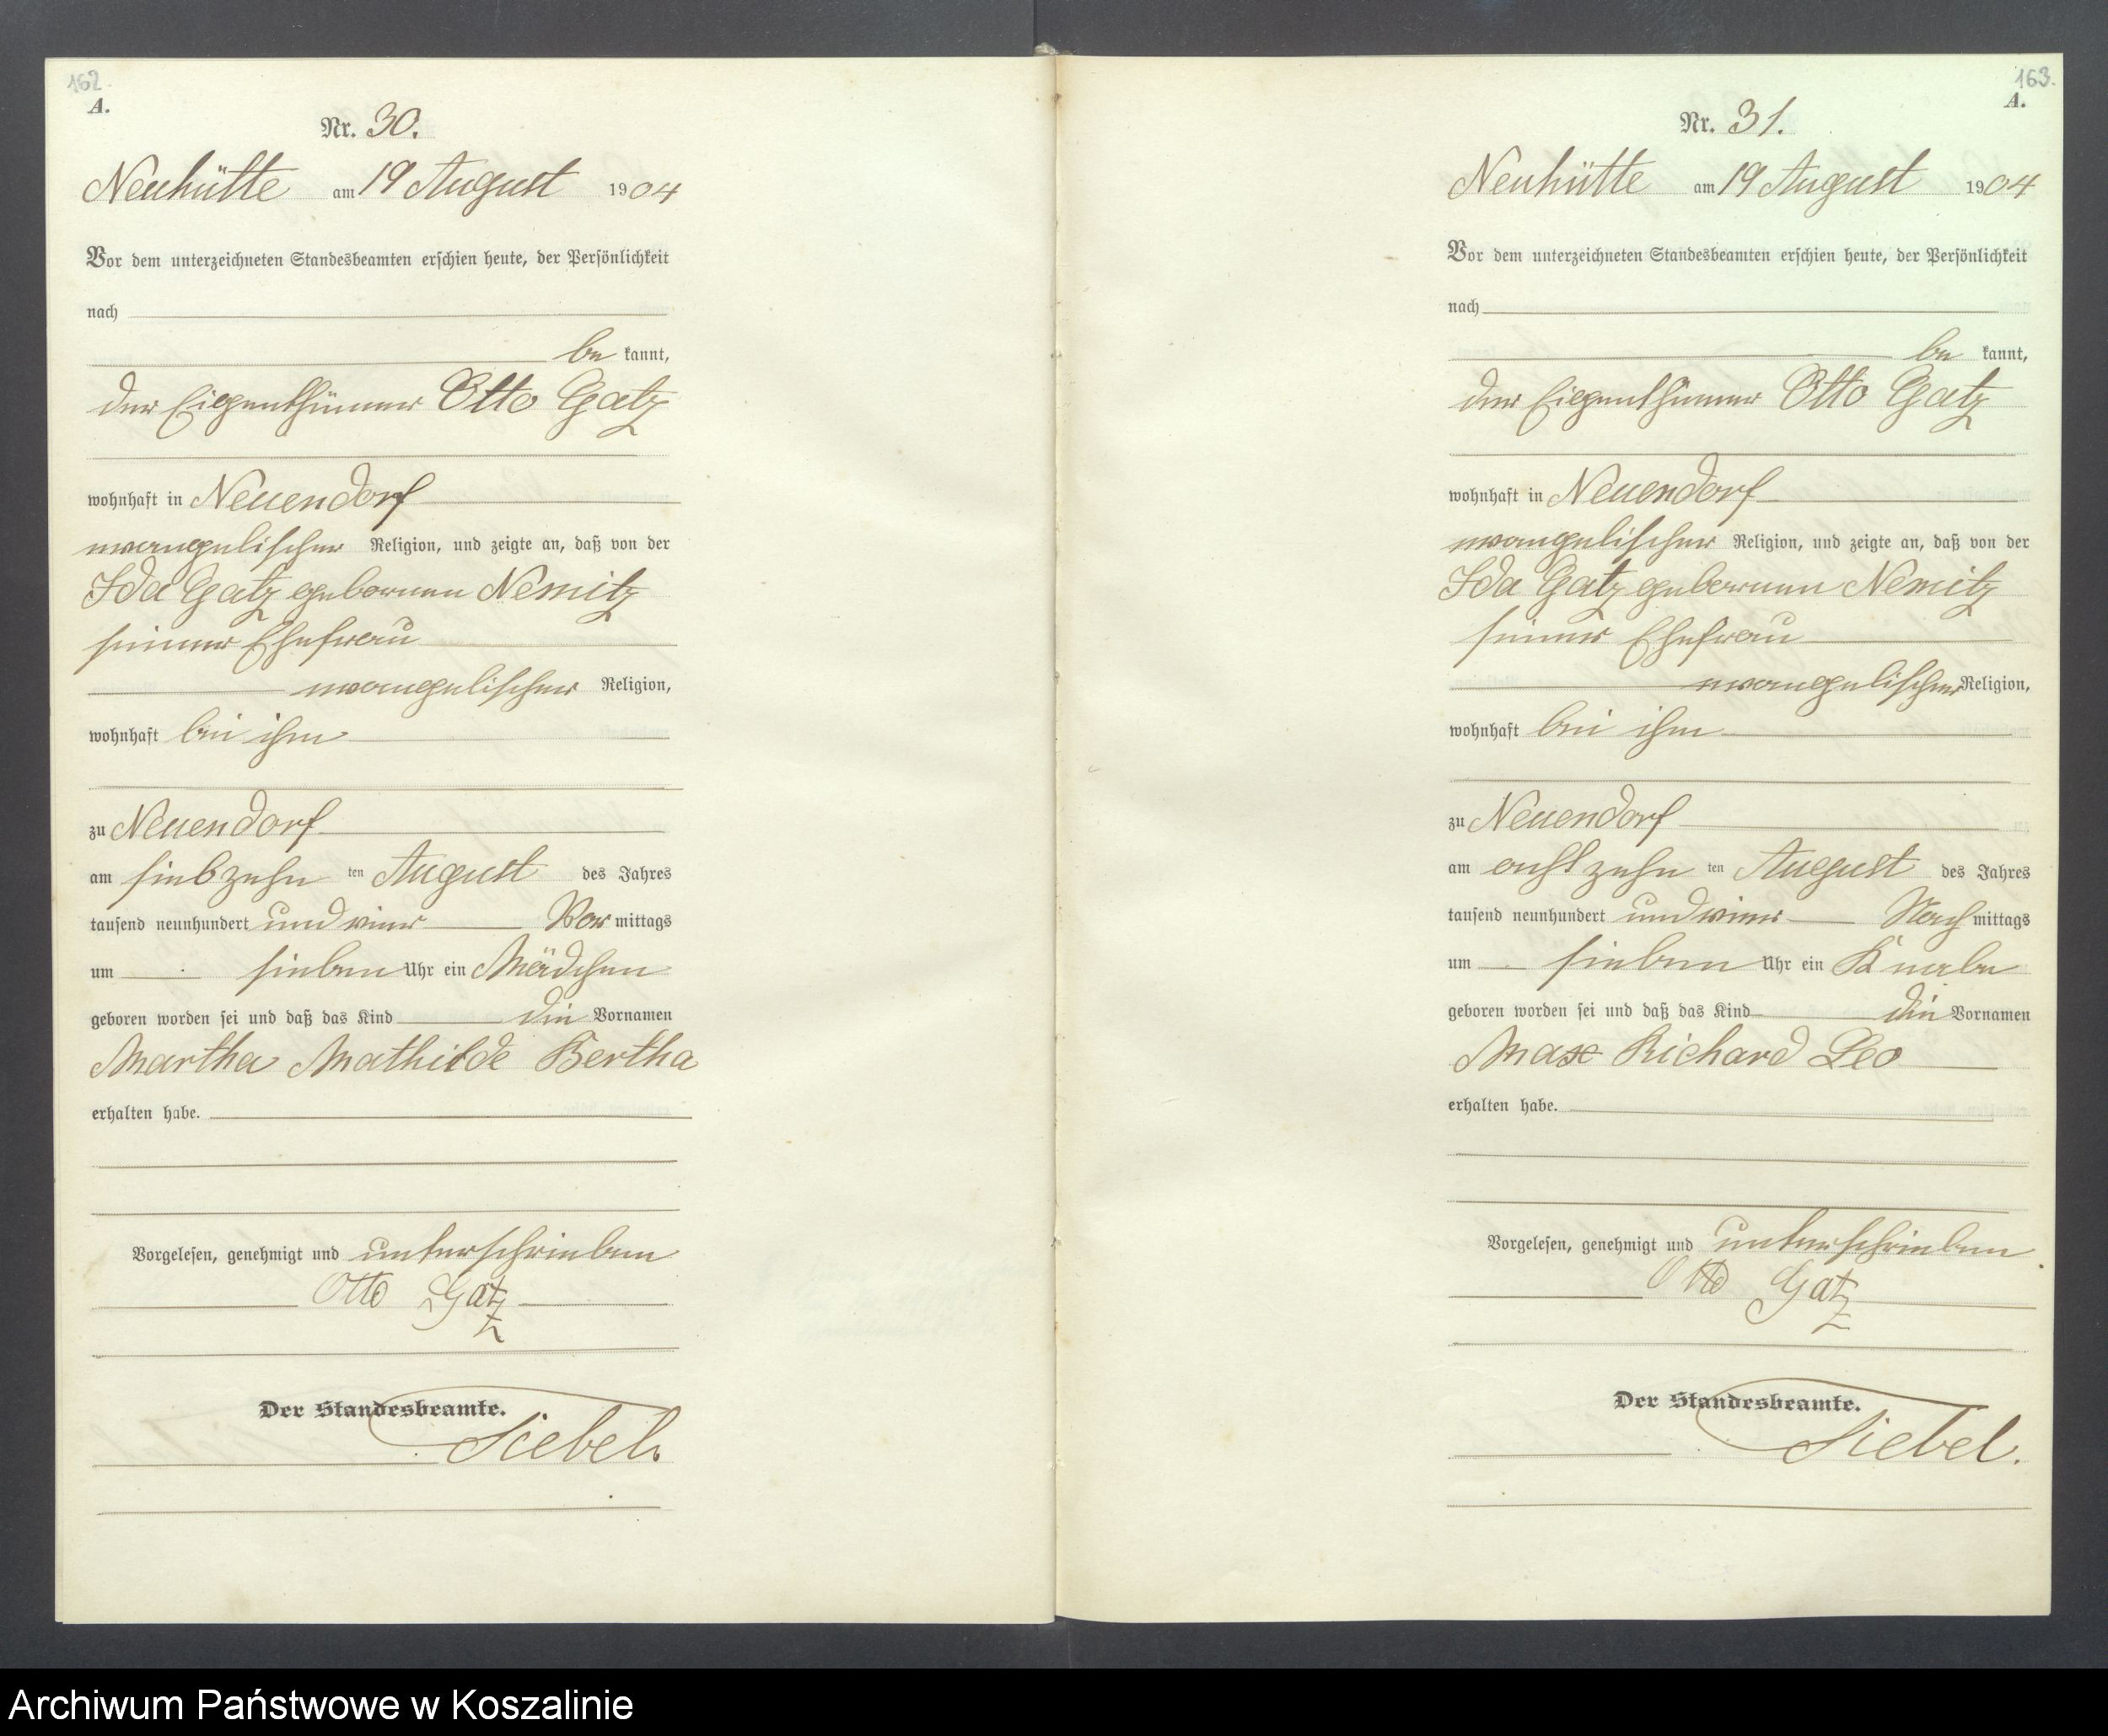 162.
A.
Nr. 30.
Neuhütte am 19 August 1904
Vor dem unterzeichneten Standesbeamten erschien heute, der Persönlichkeit
nach
be kannt,
der Eigenthümer Otto Gatz
wohnhaft in Neuendorf
evangelischer Religion, und zeigte an, daß von der
Ida Gatz geborenen Nemitz
seiner Ehefrau
evangelischer Religion,
wohnhaft bei ihm
zu Neuendorf
am siebzehn ten August des Jahres
tausend neunhundert und vier Vor mittags
um sieben Uhr ein Mädchen
geboren worden sei und daß das Kind die Vornamen
Martha Mathilde Bertha
erhalten habe.
Vorgelesen, genehmigt und unterschrieben
Otto Gatz
Der Standesbeamte.
Siebel.
163.
A.
Nr. 31.
Neuhütte am 19 August 1904
Vor dem unterzeichneten Standesbeamten erschien heute, der Persönlichkeit
nach
be kannt,
der Eigenthümer Otto Gatz
wohnhaft in Neuendorf
evangelischer Religion, und zeigte an, daß von der
Ida Gatz geborenen Nemitz
seiner Ehefrau
evangelischer Religion,
wohnhaft bei ihm
zu Neuendorf
am achtzehn ten August des Jahres
tausend neunhundert und vier Nach mittags
um sieben Uhr ein Knabe
geboren worden sei und daß das Kind die Vornamen
Max Richard Leo
erhalten habe.
Vorgelesen, genehmigt und unterschrieben
Otto Gatz
Der Standesbeamte.
Siebel.
Archiwum Państwowe w Koszalinie